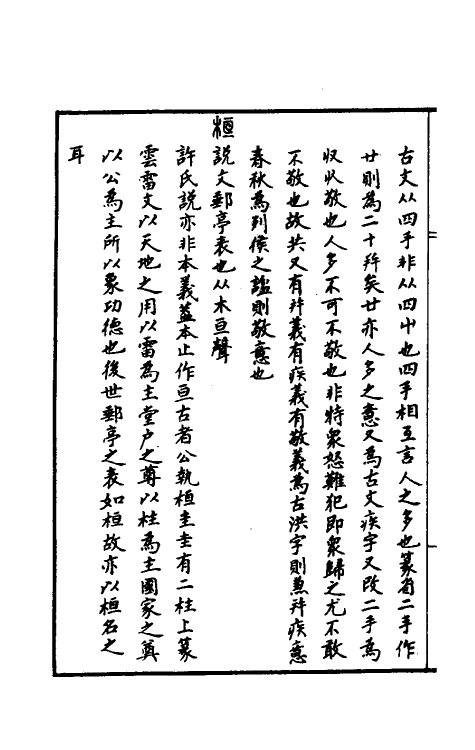 古文从四手非从四屮也四手相互言人之多也篆省二手作
廿則為二十并矣廿亦人多之意又為古文疾字又改二手為
収収敬也人多不可不敬也非特衆怒難犯即衆歸之尤不敢
不敬也故共又有并義有疾義有敬義為古洪字則兼并疾意
春秋為列侯之謚則敬意也
桓說文郵亭表也从木亘聲
許氏說亦非本義蓋本止作亘古者公執桓圭圭有二柱上篆
雲雷文以天地之用以雷為主堂户之尊以柱為主國家之奠
以公為主所以象功德也後世郵亭之表如桓故亦以桓名之
耳